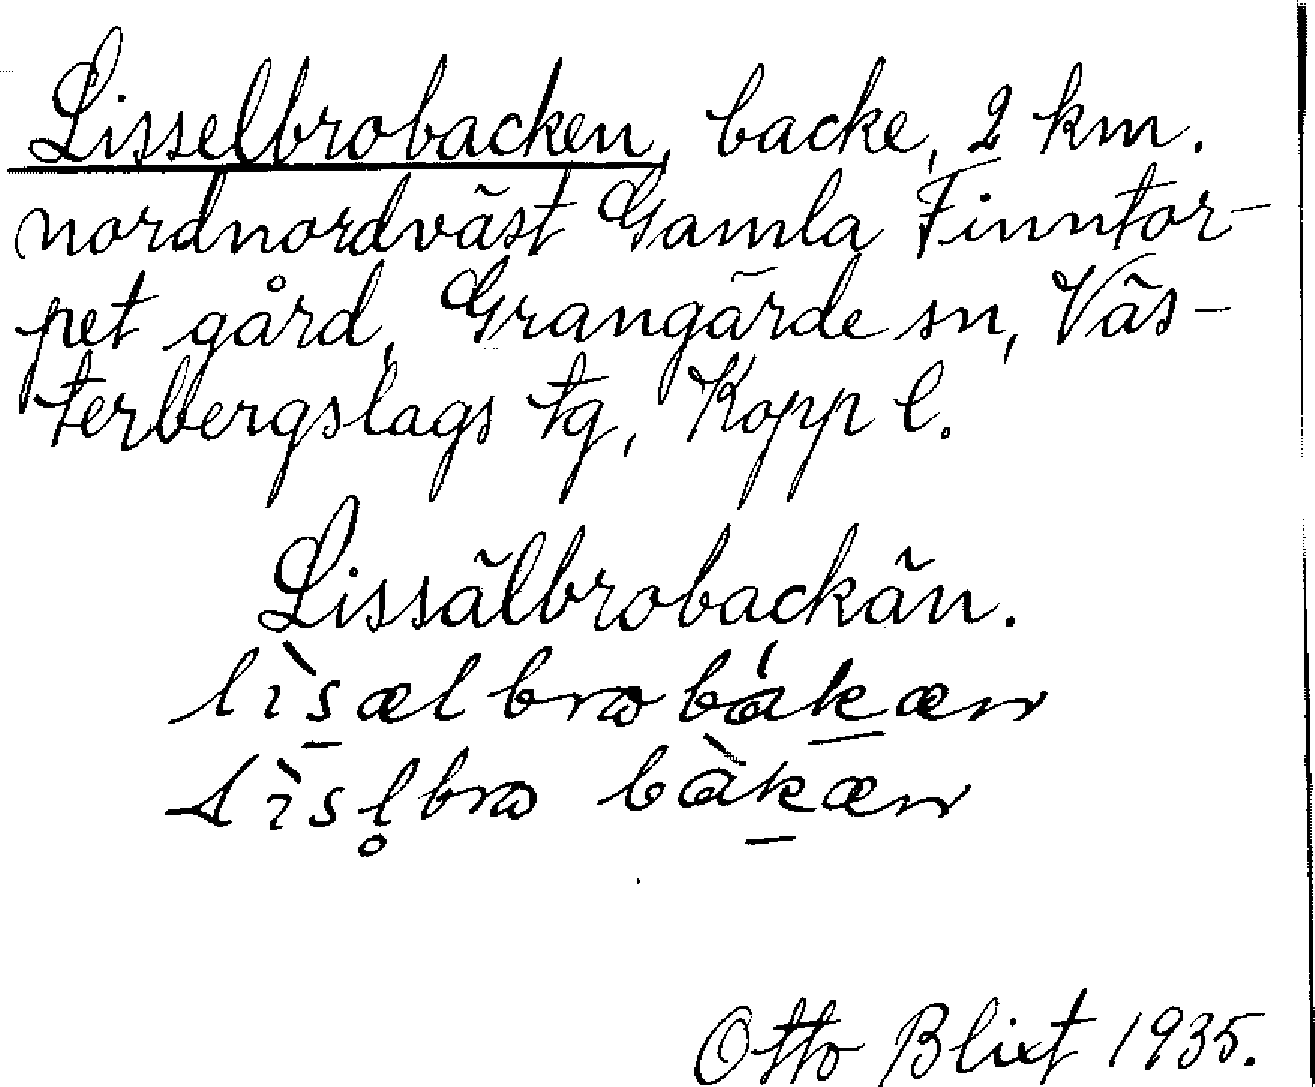 Lisselbrobacken, backe, 2 km.
nordnordväst Gamla Finntor-
pet gård, Grangärde sn, Väs-
terbergslags tg, Kopp l.
Lissälbrobackän.
lìsælbrobákæn
lìsl̥bro bàkæn
Otto Blixt 1935.